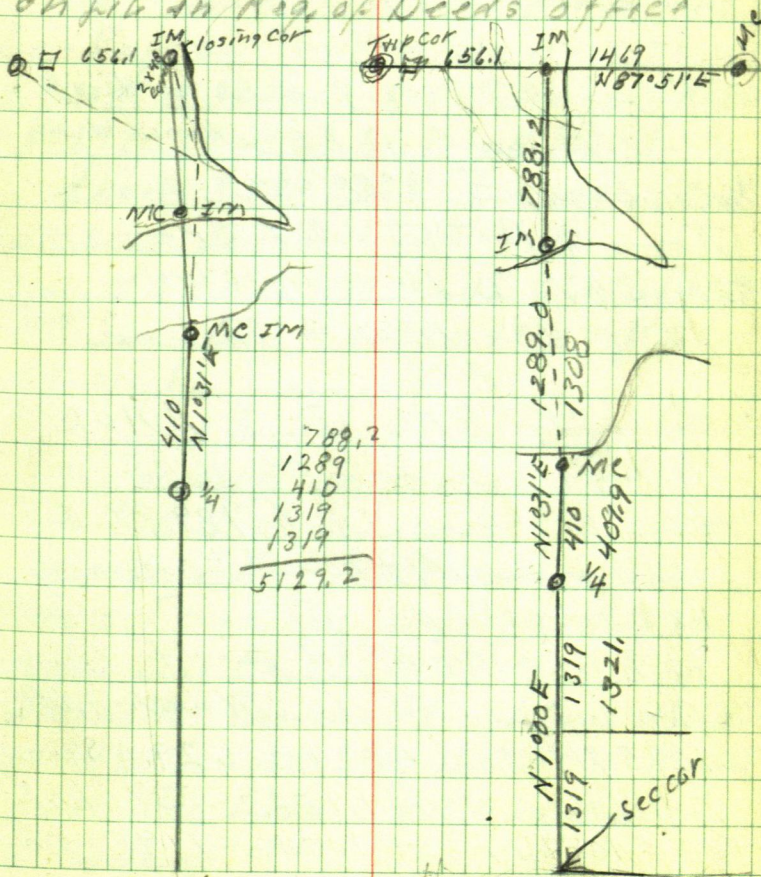 on file in Reg. of Deeds office
656.1 IM Closing Cor
MC IM
MC IM
410
N1°31'E
1/4
788.2
1289
410
1319
1319
5129.2
Twp Cor 656.1 IM 1469 MC
N87°51'E
788.2
IM
1289.0
1308
MC
N1°31'E
410
409.9
1/4
N1°00E
1319
1321.
1319
sec cor